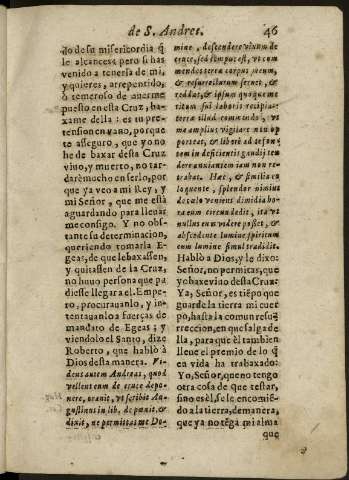 de S. Andres. 46
do de su misericordia q̃
le alcances: pero si has
venido a tenersa de mi,
y quieres, arrepentido,
ò temeroso de auerme
puesto en esta Cruz, ba-
xame della : es tu pre-
tension en vano, porque
te asseguro, que yo no
he de baxar desta Cruz
vivo, y muerto, no tar-
darè mucho en serlo, por
que ya veo a mi Rey, y
mi Señor, que me està
aguardando para lleuar
me consigo. Y no obs-
tante su determinacion,
queriendo tomarla E-
geas, de que le baxassen,
y quitassen de la Cruz,
no huuo persona que pu
diesse llegar a el. Empe-
ro, procurauanlo, y in-
tentauanlo a fuerças de
mandato de Egeas ; y
viendolo el Santo, dize
Roberto, que hablò à
Dios desta manera. Vi-
dens autem Andreas, quod
vellent eum de cruce depo-
nere, orauit, vt scribit Au-
gustinus in lib. de pœnit. &
dixit, ne permittas me Do-
mine, descendere viuum de
cruce, sed tempus est, vt com
mendes terræ corpus meum,
& resurrecturum seruet, &
reddat, & ipsum quoque me
ritum sui laboris recipiat:
terræ illud commendo, vt
me amplius vigilare non op
porteat,
tem indeficientis gaudij ten
dere anxiantem iam non re-
trabat. Hæc, & similia eo
loquente, splendor nimius
de cælo veniens dimidia ho-
ra eum circundedit, ita vt
nullus eum videre posset, &
abscedente lumine spiritum
cum lumine simul tradidit.
Hablò a Dios, y le dixo:
Señor, no permitas, que
yo baxe vivo desta Cruz:
Ya, Señor, es tiẽpo que
guarde la tierra mi cuer
po, hasta la comun resu-
rreccion, en que salga de
lla, para que èl tambien
lleue el premio de lo q̃
en vida ha trabaxado:
Yo, Señor, que no tengo
otra cosa de que testar,
sino es èl, se le encomiẽ-
do a la tierra, de manera,
que ya no tẽga mi alma
que